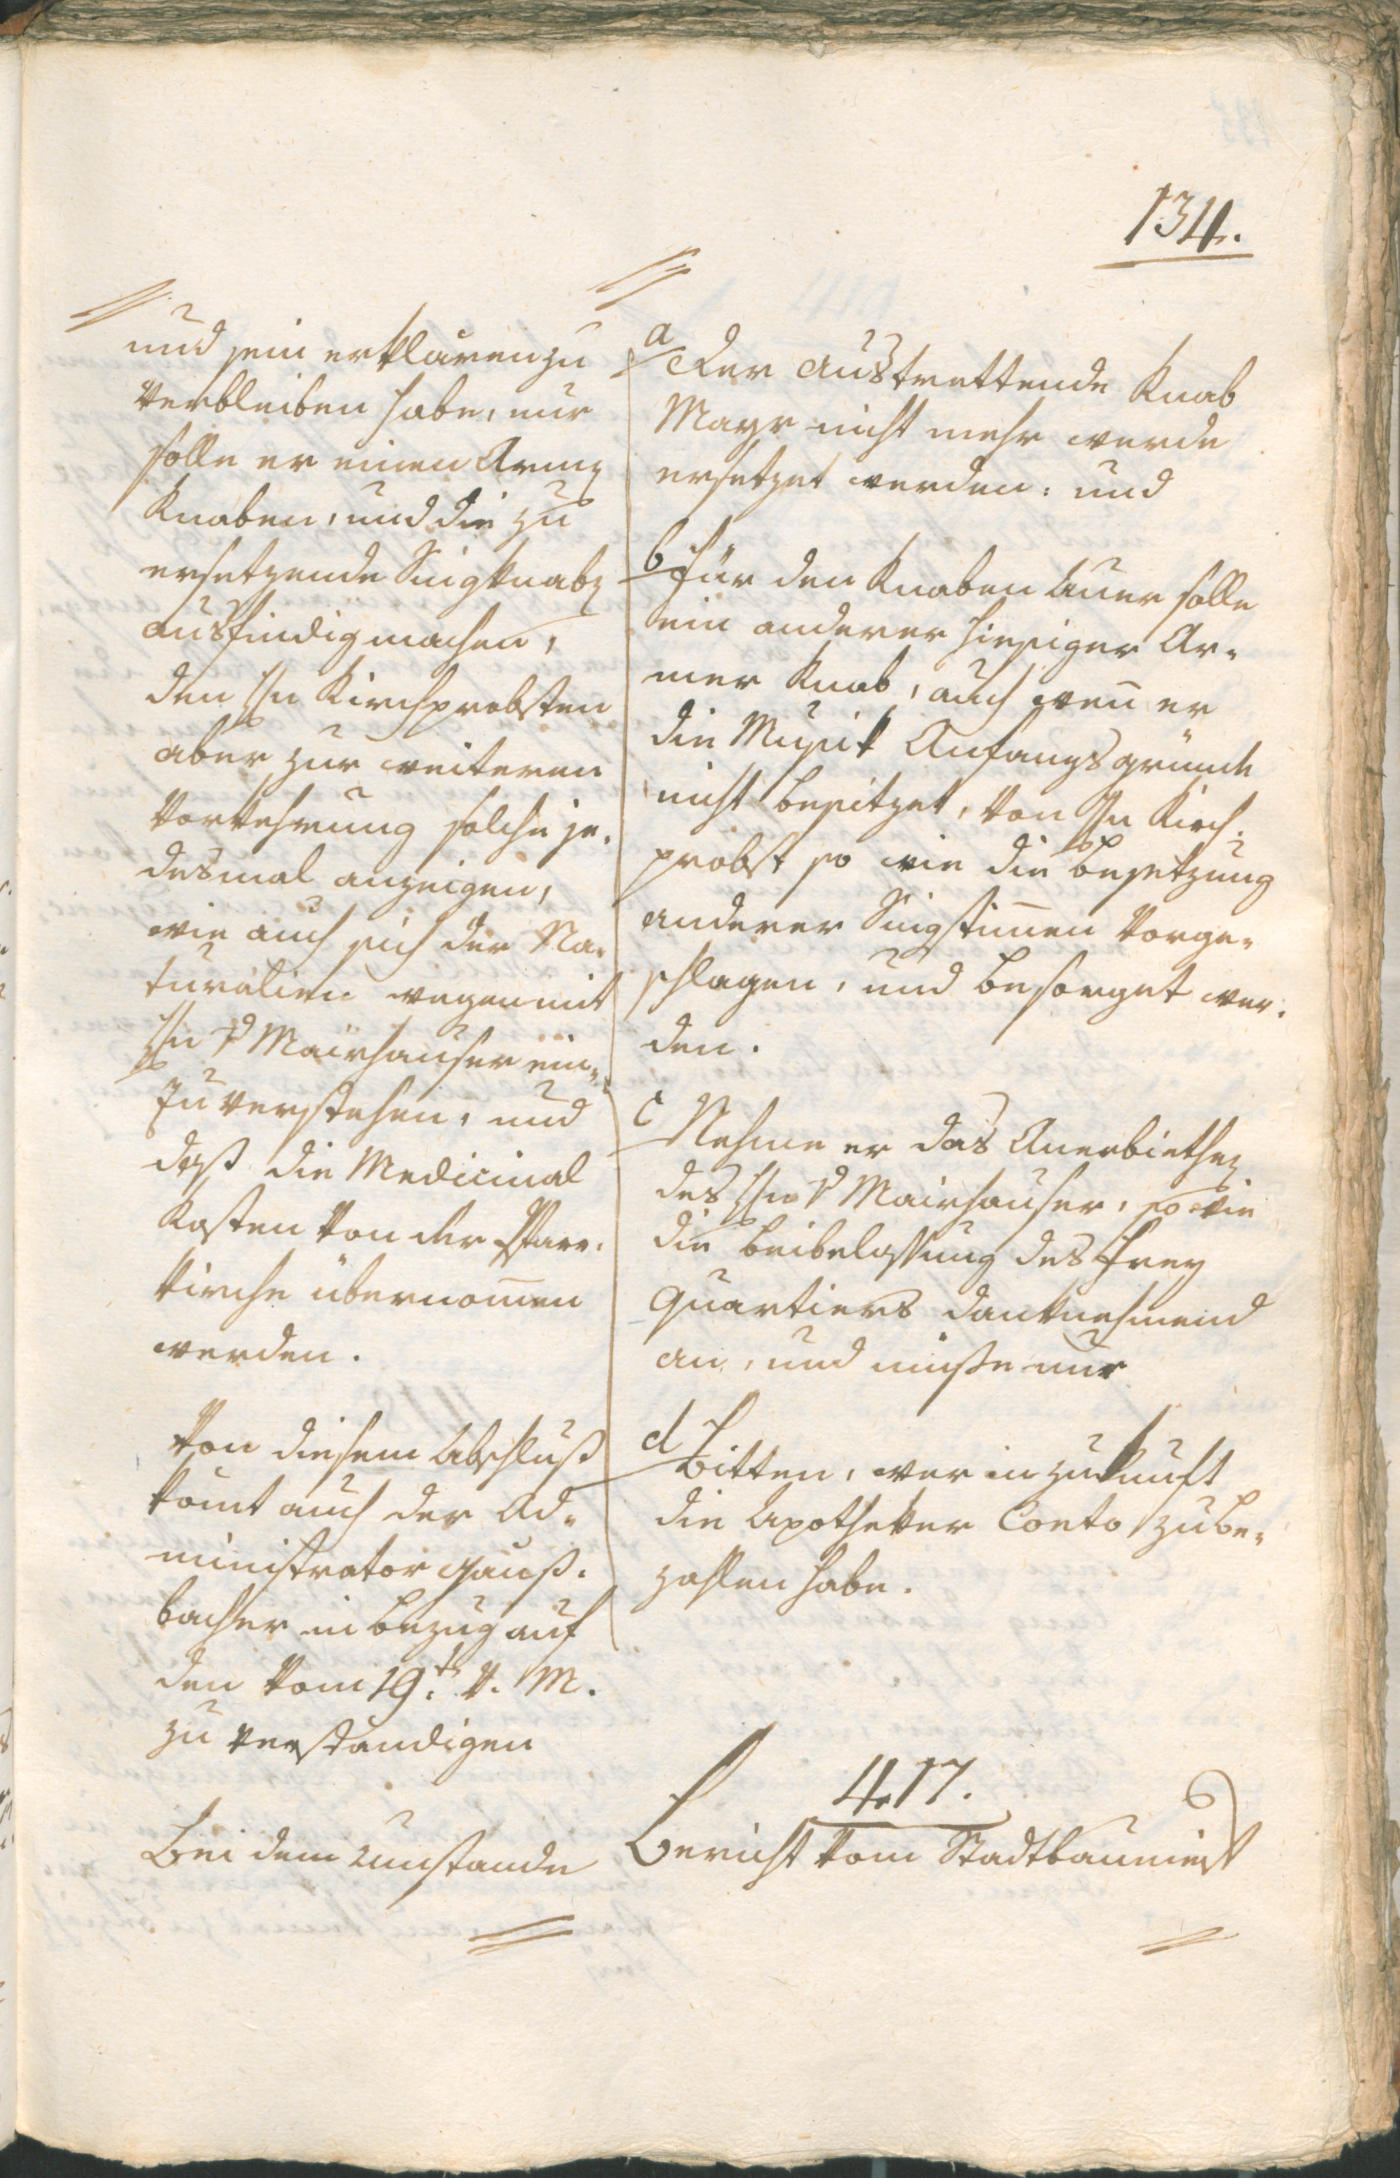 134.
und sein erklären zu
verbleiben habe, nur
solle er einen Armen
Knaben, und die zu
ersetzende Singknaben
ausfindig machen,
den Hn Kirchprobsten
aber zur weiteren
Vorkehrung solche je-
desmal anzeigen,
wie auch sich der Na-
turalien wegen mit
Hn v Mairhauser ein-
zuverstehen, und
daß die Medicinal
Kosten von der Pfarr-
kirche übernom̅en
werden.
Von diesem Abschluß
kom̅t auch der Ad-
ministrator Gänß-
bacher in bezug auf
den vom 19t. v. M.
zu verständigen
Bei dem Umstande
a
Der austrettende Knab
Mayr nicht mehr werde
ersetzet werden: und
b für den Knaben Auer solle
ein anderer hiesiger Ar-
mer Knab, auch wen̅ er
die Musik Anfangsgründe
nicht besitzet, von Hn Kirch-
probst so wie die besetzung
anderer Singstim̅en vorge-
schlagen, und besorget wer-
den.
c Nehme er das Anerbiethen
des Hn v Mairhauser, so wie
die beibelassung des frey
Quartiers danknehmend
an, und müße nur
d
bitten, wer in zukunft
die Apotheker Conto zu be-
zahlen habe.
417.
Bericht vom Stadtbaumeist